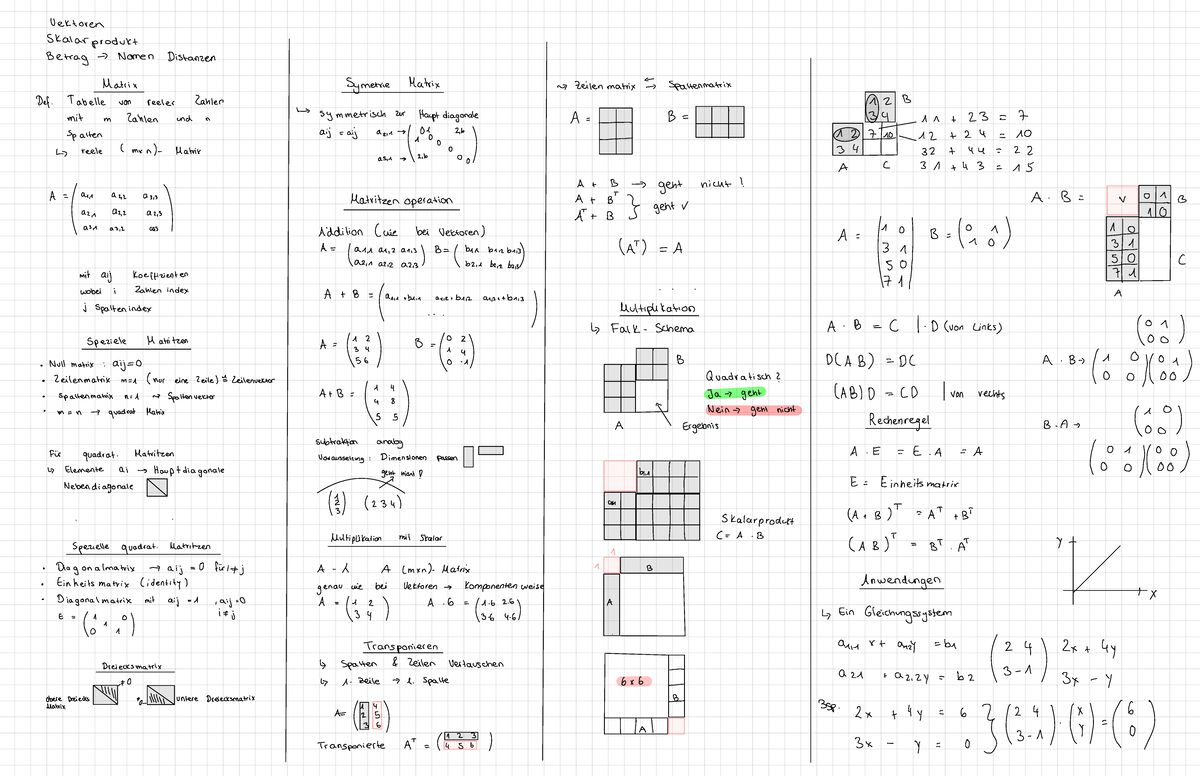 Vektoren
Skalarprodukt
Betrag → Nomen Distanzen
Matrix
Def. Tabelle von reeler Zahlen
mit m Zahlen und n
Spalten
↳ reele (m×n)- Matrix
A = ( a1,1 a1,2 a3,3
a2,1 a2,2 a2,3
a3,1 a3,2 a33 )
mit aij Koeffizienten
wobei i Zahlen index
j Spaltenindex
Spezielle Matritzen
• Null matrix : aij=0
• Zeilenmatrix m=1 (nur eine Zeile) ≙ Zeilenvektor
Spaltenmatrix n=1 ↝ Spaltenvektor
• m=n → quadrat Matrix
Für quadrat. Matritzen
↳ Elemente ai → Hauptdiagonale
Nebendiagonale
Spezielle quadrat. Matritzen
• Diagonalmatrix → aij = 0 für i≠j
• Einheitsmatrix (identity)
• Diagonalmatrix mit aij =1 , aij=0
i≠j
E = ( 1 0
1
0 1 )
Dreiecksmatrix
obere Dreiecks
Matrix
→0
untere Dreiecksmatrix
Symetrie Matrix
↳ symmetrisch zur Hauptdiagonde
aij = aij
Matritzen operation
Addition (wie bei Vektoren)
A = ( a1,1 a1,2 a1,3
a2,1 a2,2 a2,3 ) B = ( b1,1 b1,2 b1,3
b2,1 b2,2 b2,3 )
A + B = ( a1,1 + b1,1 a1,2 + b1,2 a1,3 + b1,3
. . . )
A = ( 1 2
3 4
5 6 ) B = ( 0 2
1 4
0 -1 )
A+B = ( 1 4
4 8
5 5 )
Subtraktion analog
Voraussetzung : Dimensionen passen
geht nicht !
( 1
2
3 ) ( 2 3 4 )
Multiplikation mit Skalar
A - λ A (m×n)- Matrix
genau wie bei Vektoren → Komponenten weise
A = ( 1 2
3 4 ) A . 6 = ( 1·6 2·6
3·6 4·6 )
Transponieren
↳ Spalten & Zeilen Vertauschen
↳ 1. Zeile → 1. Spalte
A = ( 1 4
2 5
3 6 )
Transponierte Aᵀ = ( 1 2 3
4 5 6 )
↝ Zeilenmatrix ⇆ Spaltenmatrix
A = B =
A + B → geht nicht !
A + Bᵀ
Aᵀ + B } geht v
(Aᵀ) = A
. . .
Multiplikation
↳ Falk - Schema
B
A
Ergebnis
Quadratisch ?
Ja → geht
Nein → geht nicht
b1,1
Skalarprodukt
C = A · B
1
1 B
A
6 x 6
B
A
1 2 B
3 4
1 2 7 10
3 4
A C
1 1 + 2 3 = 7
1 2 + 2 4 = 10
3 2 + 4 4 = 2 2
3 1 + 4 3 = 1 5
A . B =
V 0 1 B
1 0
1 0
3 1
5 0 C
7 1
A
A = ( 1 0
3 1
5 0
7 1 ) B = ( 0 1
1 0 )
A · B = C | · D (von Links)
D(A B) = DC
(AB) D = CD | von rechts
( 0 1
0 0 )
A · B → ( 1 0
0 0 ) ( 0 1
0 0 )
( 1 0
0 0 )
B · A →
( 0 1
0 0 ) ( 1 0
0 0 )
Rechenregel
A . E = E . A = A
E = Einheitsmatrix
(A + B)ᵀ = Aᵀ + Bᵀ
(A B)ᵀ = Bᵀ . Aᵀ
Y
X
Anwendungen
↳ Ein Gleichungssystem
a1,1 x + a1,2y = b1
a21 + a2,2y = b2
( 2 4
3 -1 ) 2x + 4y
3x - y
Bsp. 2x + 4y = 6
3x - y = 0 } ( 2 4
3 -1 ) · ( x
y ) = ( 6
0 )